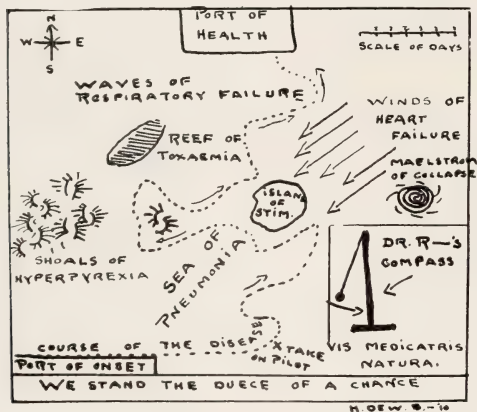 PORT OF
HEALTH
N
W E
S
SCALE OF DAYS
WAVES OF
RESPIRATORY FAILURE
WINDS OF
HEART
FAILURE
REEF OF
TOXAEMIA
MAELSTROM
OF COLLAPSE
ISLAND
OF
STIM.
SHOALS OF
HYPERPYREXIA
SEA OF
PNEUMONIA
DR. R—'S
COMPASS
VIS MEDICATRIS
NATURA.
COURSE OF THE DISEASE
X TAKE
ON PILOT
PORT OF ONSET
WE STAND THE DUECE OF A CHANCE
H. DEW. B. -10